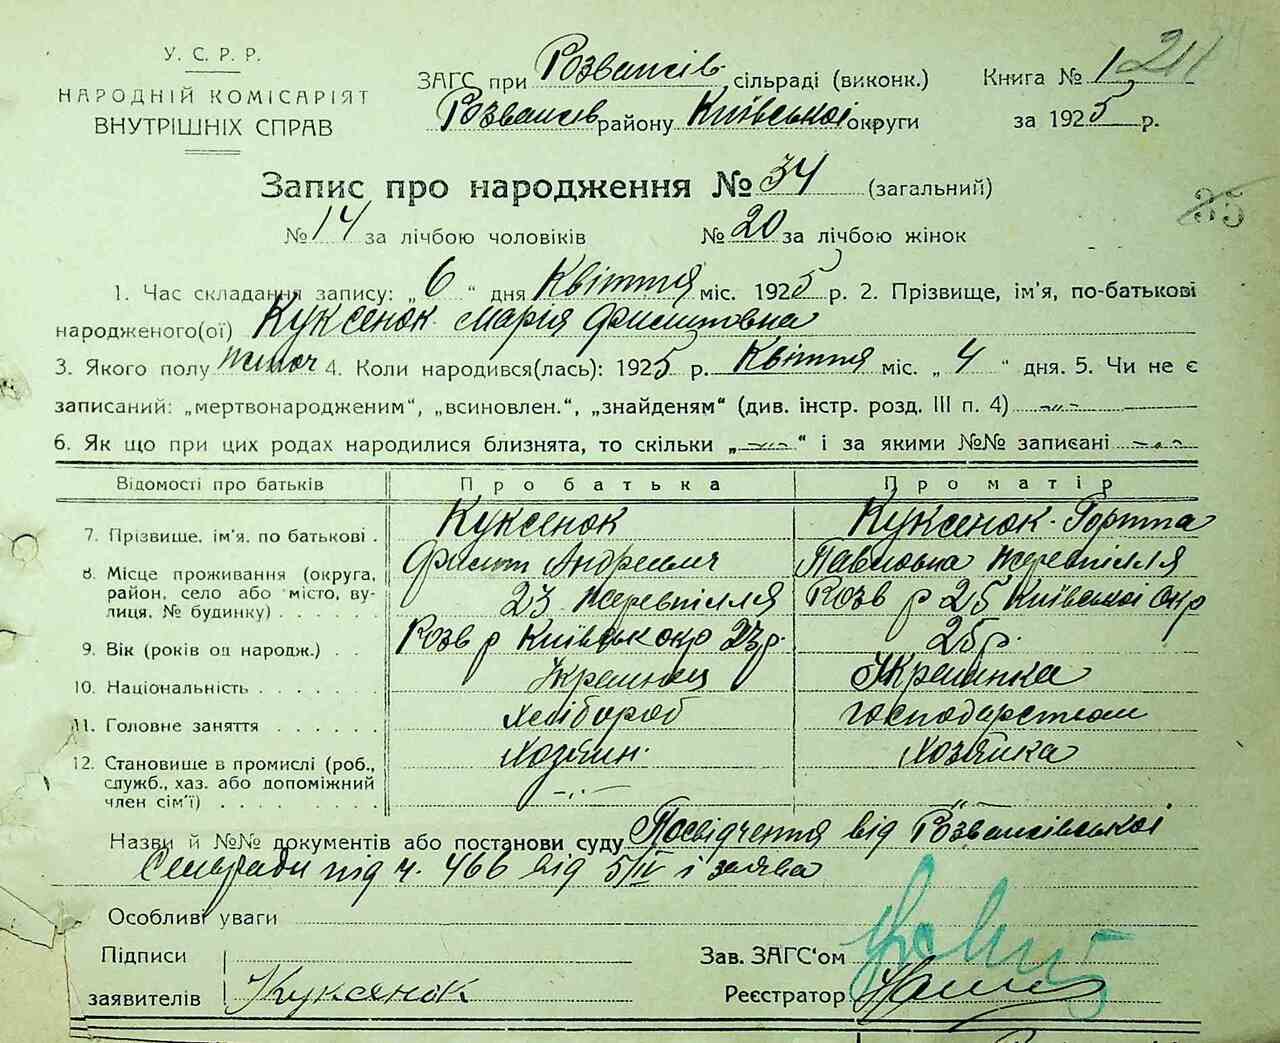 У. С. Р. Р.
НАРОДНІЙ КОМІСАРІЯТ
ВНУТРІШНІХ СПРАВ
ЗАГС при Розважів. сільраді (виконк.)
Розважів району Київської округи
Книга № 1
за 1925 р.
Запис про народження № 34 (загальний)
35
№ 14 за лічбою чоловіків № 20 за лічбою жінок
1. Час складання запису: „6“ дня Квіття міс. 1925 р. 2. Прізвище, ім'я, по-батькові
народженого(ої) Куксенок Марія Филиповна
3. Якого полу жіноч 4. Коли народився(лась): 1925 р. Квіття міс. „4“ дня. 5. Чи не є
записаний: „мертвонародженим“, „всиновлен.“, „знайденям“ (див. інстр. розд. III п. 4)
6. Як що при цих родах народилися близнята, то скільки „ “ і за якими №№ записані
Відомості про батьків Про батька Про матір
7. Прізвище, ім'я, по батькові . Куксенок Куксенок Горпина
Филип Андреевич Павловна
8. Місце проживання (округа, район, село або місто, вулиця, № будинку) . . . . .
23 Розв р 25 Київської окр
9. Вік (років од народж.) . . Розв р Київськ окр 23 р. 25 р.
10. Національність . . . . . . Украинец Украинка
11. Головне заняття . . . . . . Хлібороб господарством
12. Становище в промислі (роб., служб., хаз. або допоміжний член сім'ї) . . . . . . . . Хозяин. Хозяйка
Назви й №№ документів або постанови суду Посвідчення від Розважівської
Сельради під ч. 466 від 5/IV і заява
Особливі уваги
Підписи
заявителів Куксенок
Зав. ЗАГС'ом
Реєстратор